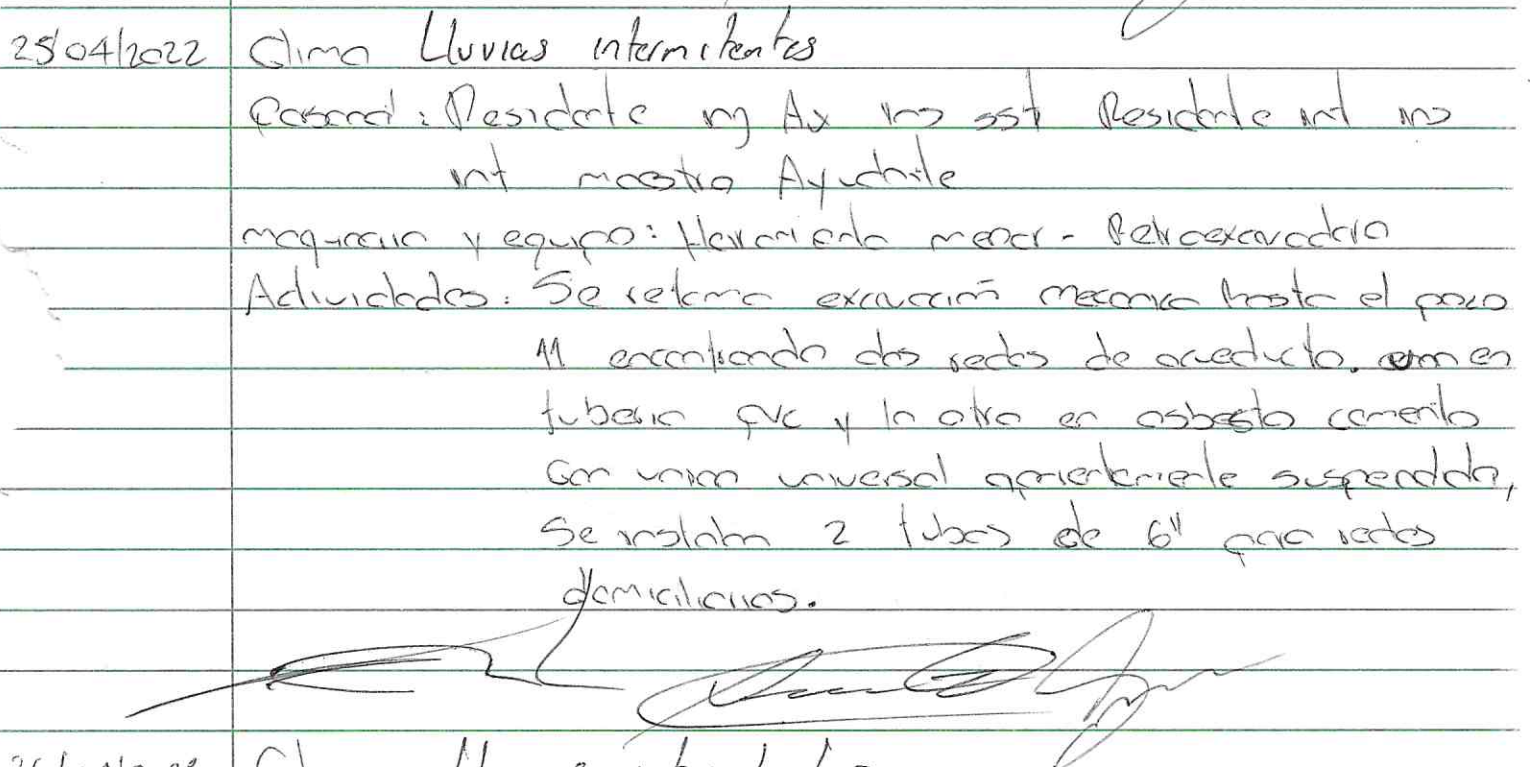 25/04/2022 Clima Lluvias intermitentes
Personal: Residente ing Ax ing sst Residente int ing
int maestro Ayudante
maquinaria y equipo: Herramienta menor - Retroexcavadora
Actividades: Se retoma excavación mecanica hasta el pozo
11 encontrando dos redes de acueducto. una en
tuberia pvc y la otra en asbesto cemento
con union universal aparentemente suspendida,
Se instalan 2 tubos de 6" para redes
domiciliarias.